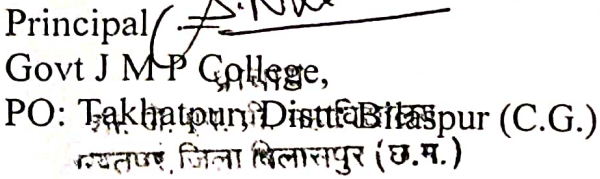 Principal
Govt J M P College,
PO: Takhatpur, Distt Bilaspur (C.G.)
जिला बिलासपुर (छ.ग.)